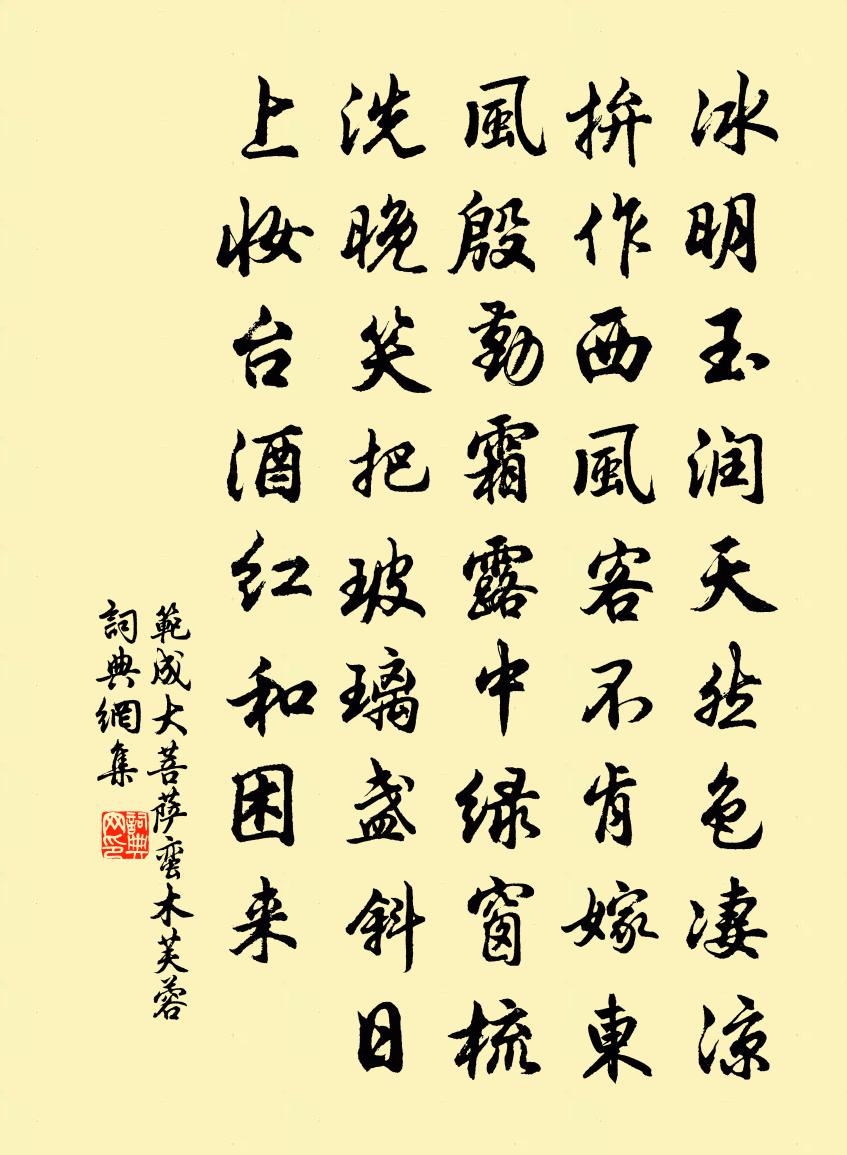 冰明玉润天然色凄凉
拚作西風客不肯嫁東
風殷勤霜露中绿窗梳
洗晚笑把玻璃盏斜日
上妆台酒红和困来
範成大菩萨蛮木芙蓉
詞典網集
詞典
网印